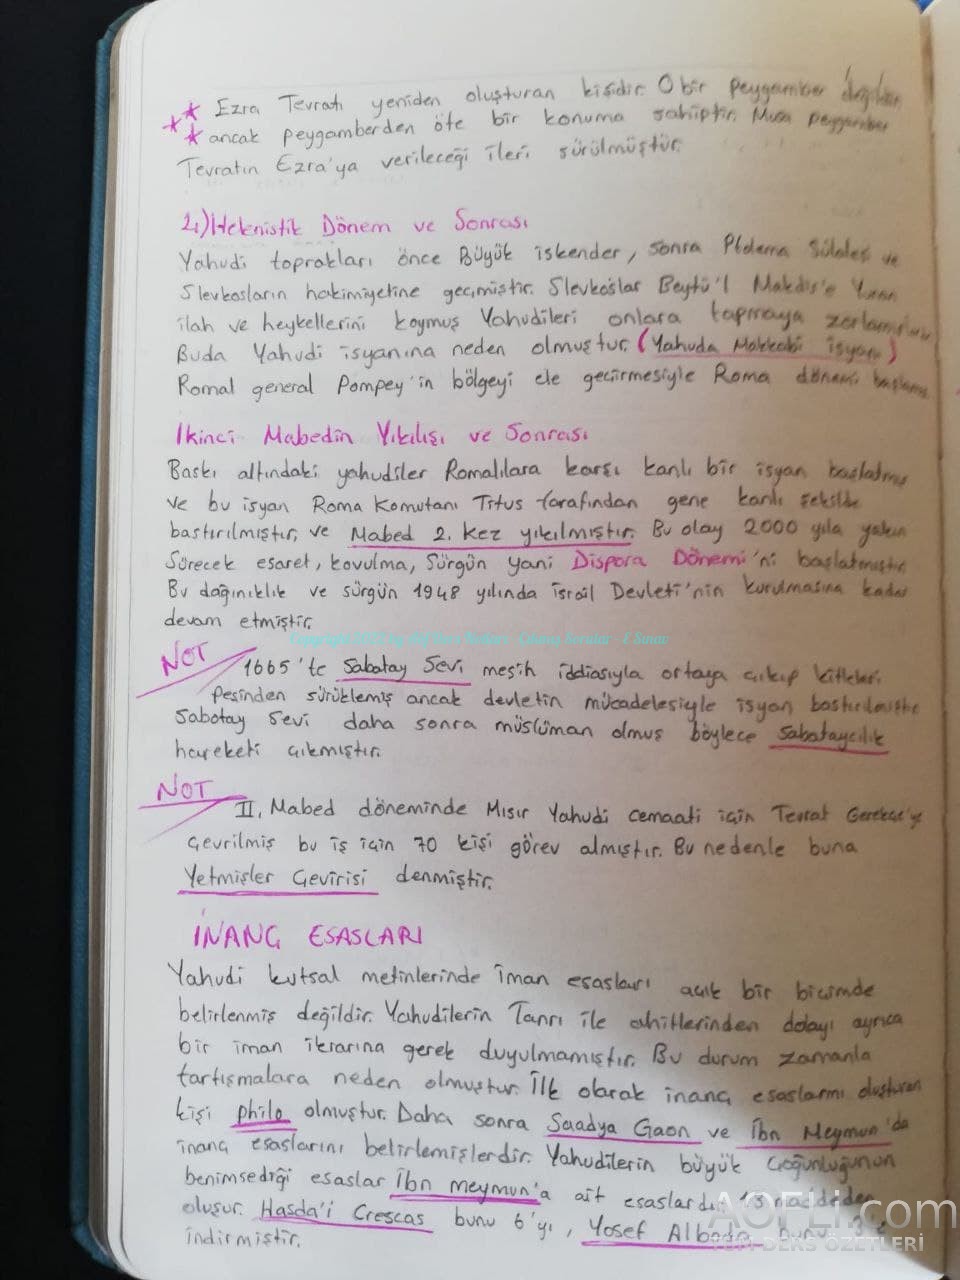 Ezra Tevratı yeniden oluşturan kişidir. O bir peygamber değildir
ancak peygamberden öte bir konuma sahiptir. Musa peygamber
Tevratın Ezra'ya verileceği ileri sürülmüştür.
4) Helenistik Dönem ve Sonrası
Yahudi toprakları önce Büyük İskender, sonra Ptolema Sülalesi ve
Slevkosların hakimiyetine geçmiştir. Slevkoslar Beytü'l Makdis'e Yunan
ilah ve heykellerini koymuş Yahudileri onlara tapmaya zorlamışlar
Buda Yahudi isyanına neden olmuştur. (Yahuda Makkabi isyanı)
Romal general Pompey'in bölgeyi ele geçirmesiyle Roma dönemi başlamış
İkinci Mabedin Yıkılışı ve Sonrası
Baskı altındaki yahudiler Romalılara karşı kanlı bir isyan başlatmış
ve bu isyan Roma Komutanı Titus tarafından gene kanlı şekilde
bastırılmıştır, ve Mabed 2. kez yıkılmıştır. Bu olay 2000 yıla yakın
Sürecek esaret, kovulma, Sürgün yani Dispora Dönemi'ni başlatmıştır
Bu dağınıklık ve sürgün 1948 yılında İsrail Devleti'nin kurulmasına kadar
devam etmiştir.
NOT
1665'te Sabatay Sevi mesih iddiasıyla ortaya çıkıp kitleleri
peşinden sürüklemiş ancak devletin mücadelesiyle isyan bastırılmıştır
Sabatay Sevi daha sonra müslüman olmuş böylece Sabataycılık
hareketi çıkmıştır.
NOT
II. Mabed döneminde Mısır Yahudi cemaati için Tevrat Gerekçe'ye
Çevrilmiş bu iş için 70 kişi görev almıştır. Bu nedenle buna
Yetmişler Çevirisi denmiştir.
İNANÇ ESASLARI
Yahudi kutsal metinlerinde iman esasları açık bir biçimde
belirlenmiş değildir. Yahudilerin Tanrı ile ahitlerinden dolayı ayrıca
bir iman ikrarına gerek duyulmamıştır. Bu durum zamanla
tartışmalara neden olmuştur. İlk olarak inanç esaslarını oluşturan
kişi philo olmuştur. Daha sonra Saadya Gaon ve İbn Meymun'da
inanç esaslarını belirlemişlerdir. Yahudilerin büyük çoğunluğunun
benimsediği esaslar İbn meymun'a ait esaslardır. 13 maddeden
oluşur. Hasda'i Crescas bunu 6'yı, Yosef Albo
indirmiştir.
AOFLi.com
TÜM DERS ÖZETLERİ